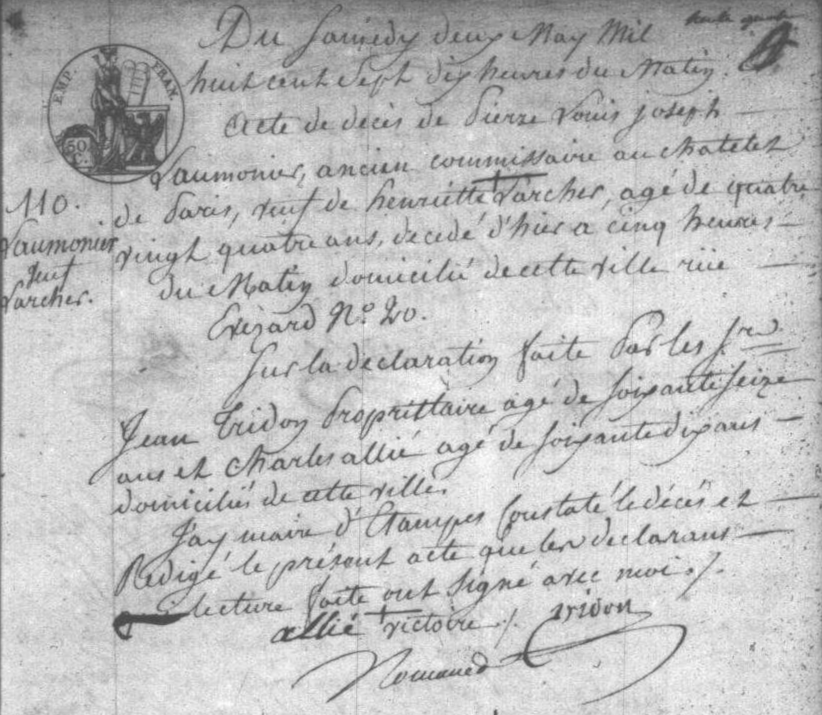 Du Samedy deux May Mil
huit cent Sept dix heures du Matin.
EMP. FRAN.
50 C.
Acte de decès de Pierre Louis joseph
Laumonier, ancien commissaire au chatelet
110.
Laumonier
veuf
Larcher.
de Paris, veuf de henriette Larcher, agé de quatre
vingt quatre ans, decedé d'hier a cinq heures
du Matin domicilié de cette ville rüe
Evezard N.o 20.
Sur la declaration faite Par les S.rs
Jean Tridon Propriétaire agé de soixante seize
ans et Charles allié agé de soixante dix ans
domiciliés de cette ville.
J'ay maire d'Etampes Constaté le décès et
Redigé le présent acte que les declarans
lecture faite ont signé avec moi ./.
allié victoire ./. tridon